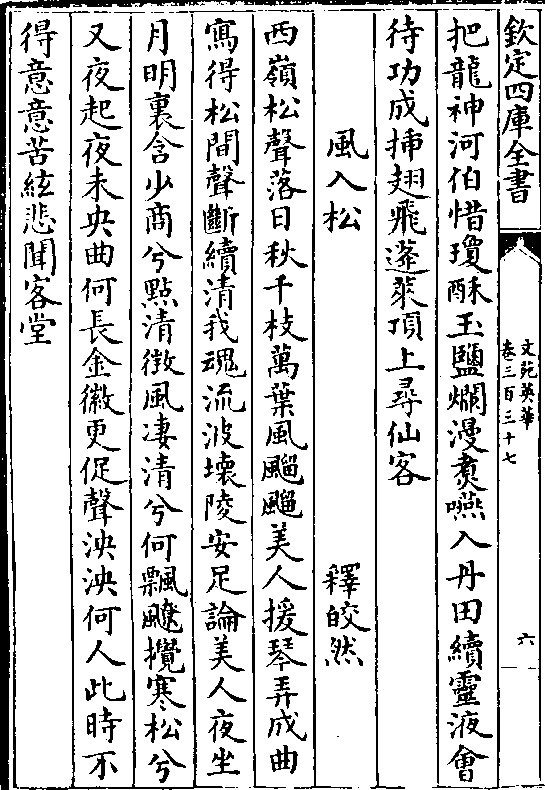 欽定四庫全書
文苑英華
卷三百三十七
六
把龍神河伯惜瓊酥玉鹽爛漫煑嚥入丹田續靈液會
待功成揷翅飛蓬萊頂上尋仙客
風入松
釋皎然
西嶺松聲落日秋千枝萬葉風飀飀美人援琴弄成曲
寫得松間聲斷續聲斷續清我魂流波壞陵安足論美人夜坐
月明裏含少商兮點清徴風凄清兮何飄飉攪寒松兮
又夜起夜未央曲何長金徽更促聲泱泱何人此時不
得意意苦絃悲聞客堂